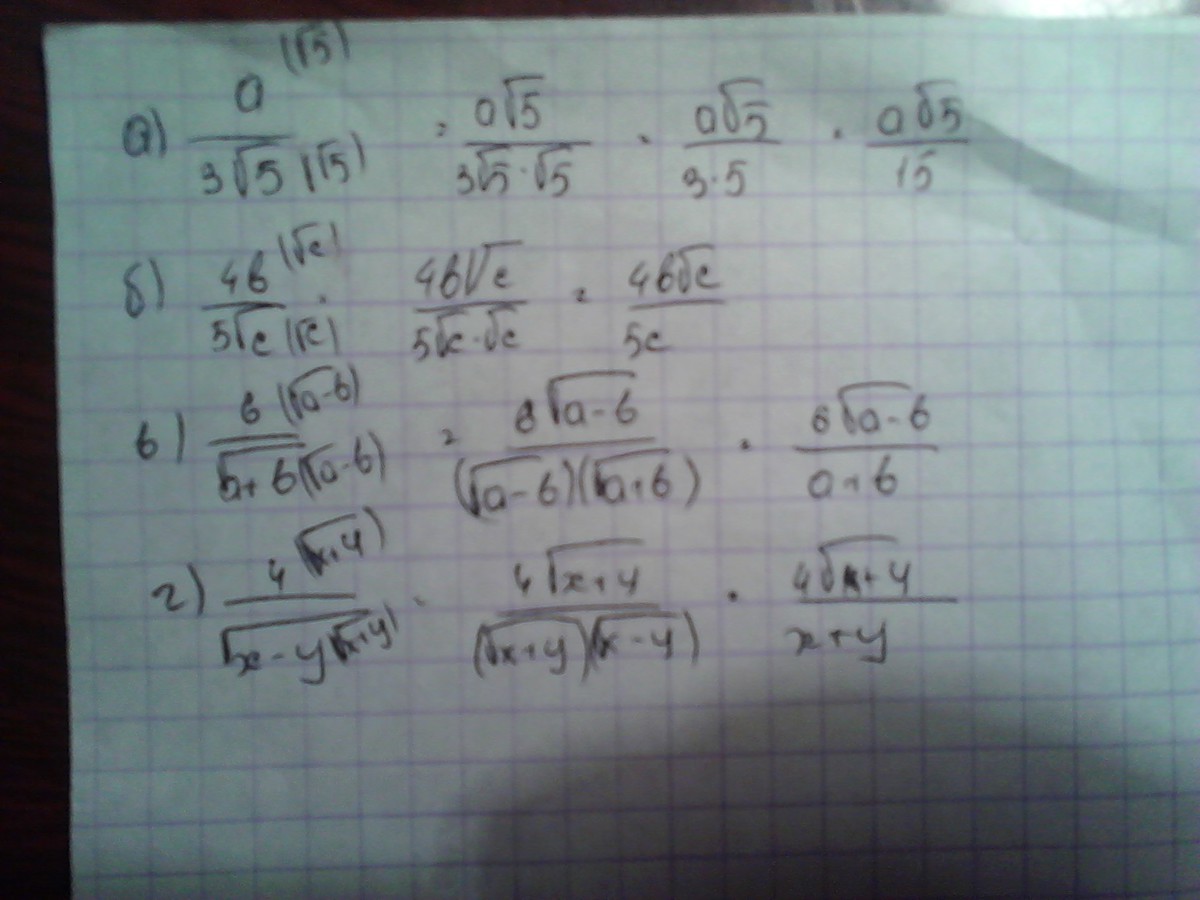 а) a (√5) / 3√5 (√5) = a√5 / 3√5·√5 = a√5 / 3·5 = a√5 / 15
б) 4b (√c) / 5√c (√c) = 4b√c / 5√c·√c = 4b√c / 5c
в) 6 (√a-6) / √a+6 (√a-6) = 6√a-6 / (√a-6)(√a+6) = 6√a-6 / a+6
г) 4 (√x+y) / √x-y (√x+y) = 4√x+y / (√x+y)(√x-y) = 4√x+y / x+y